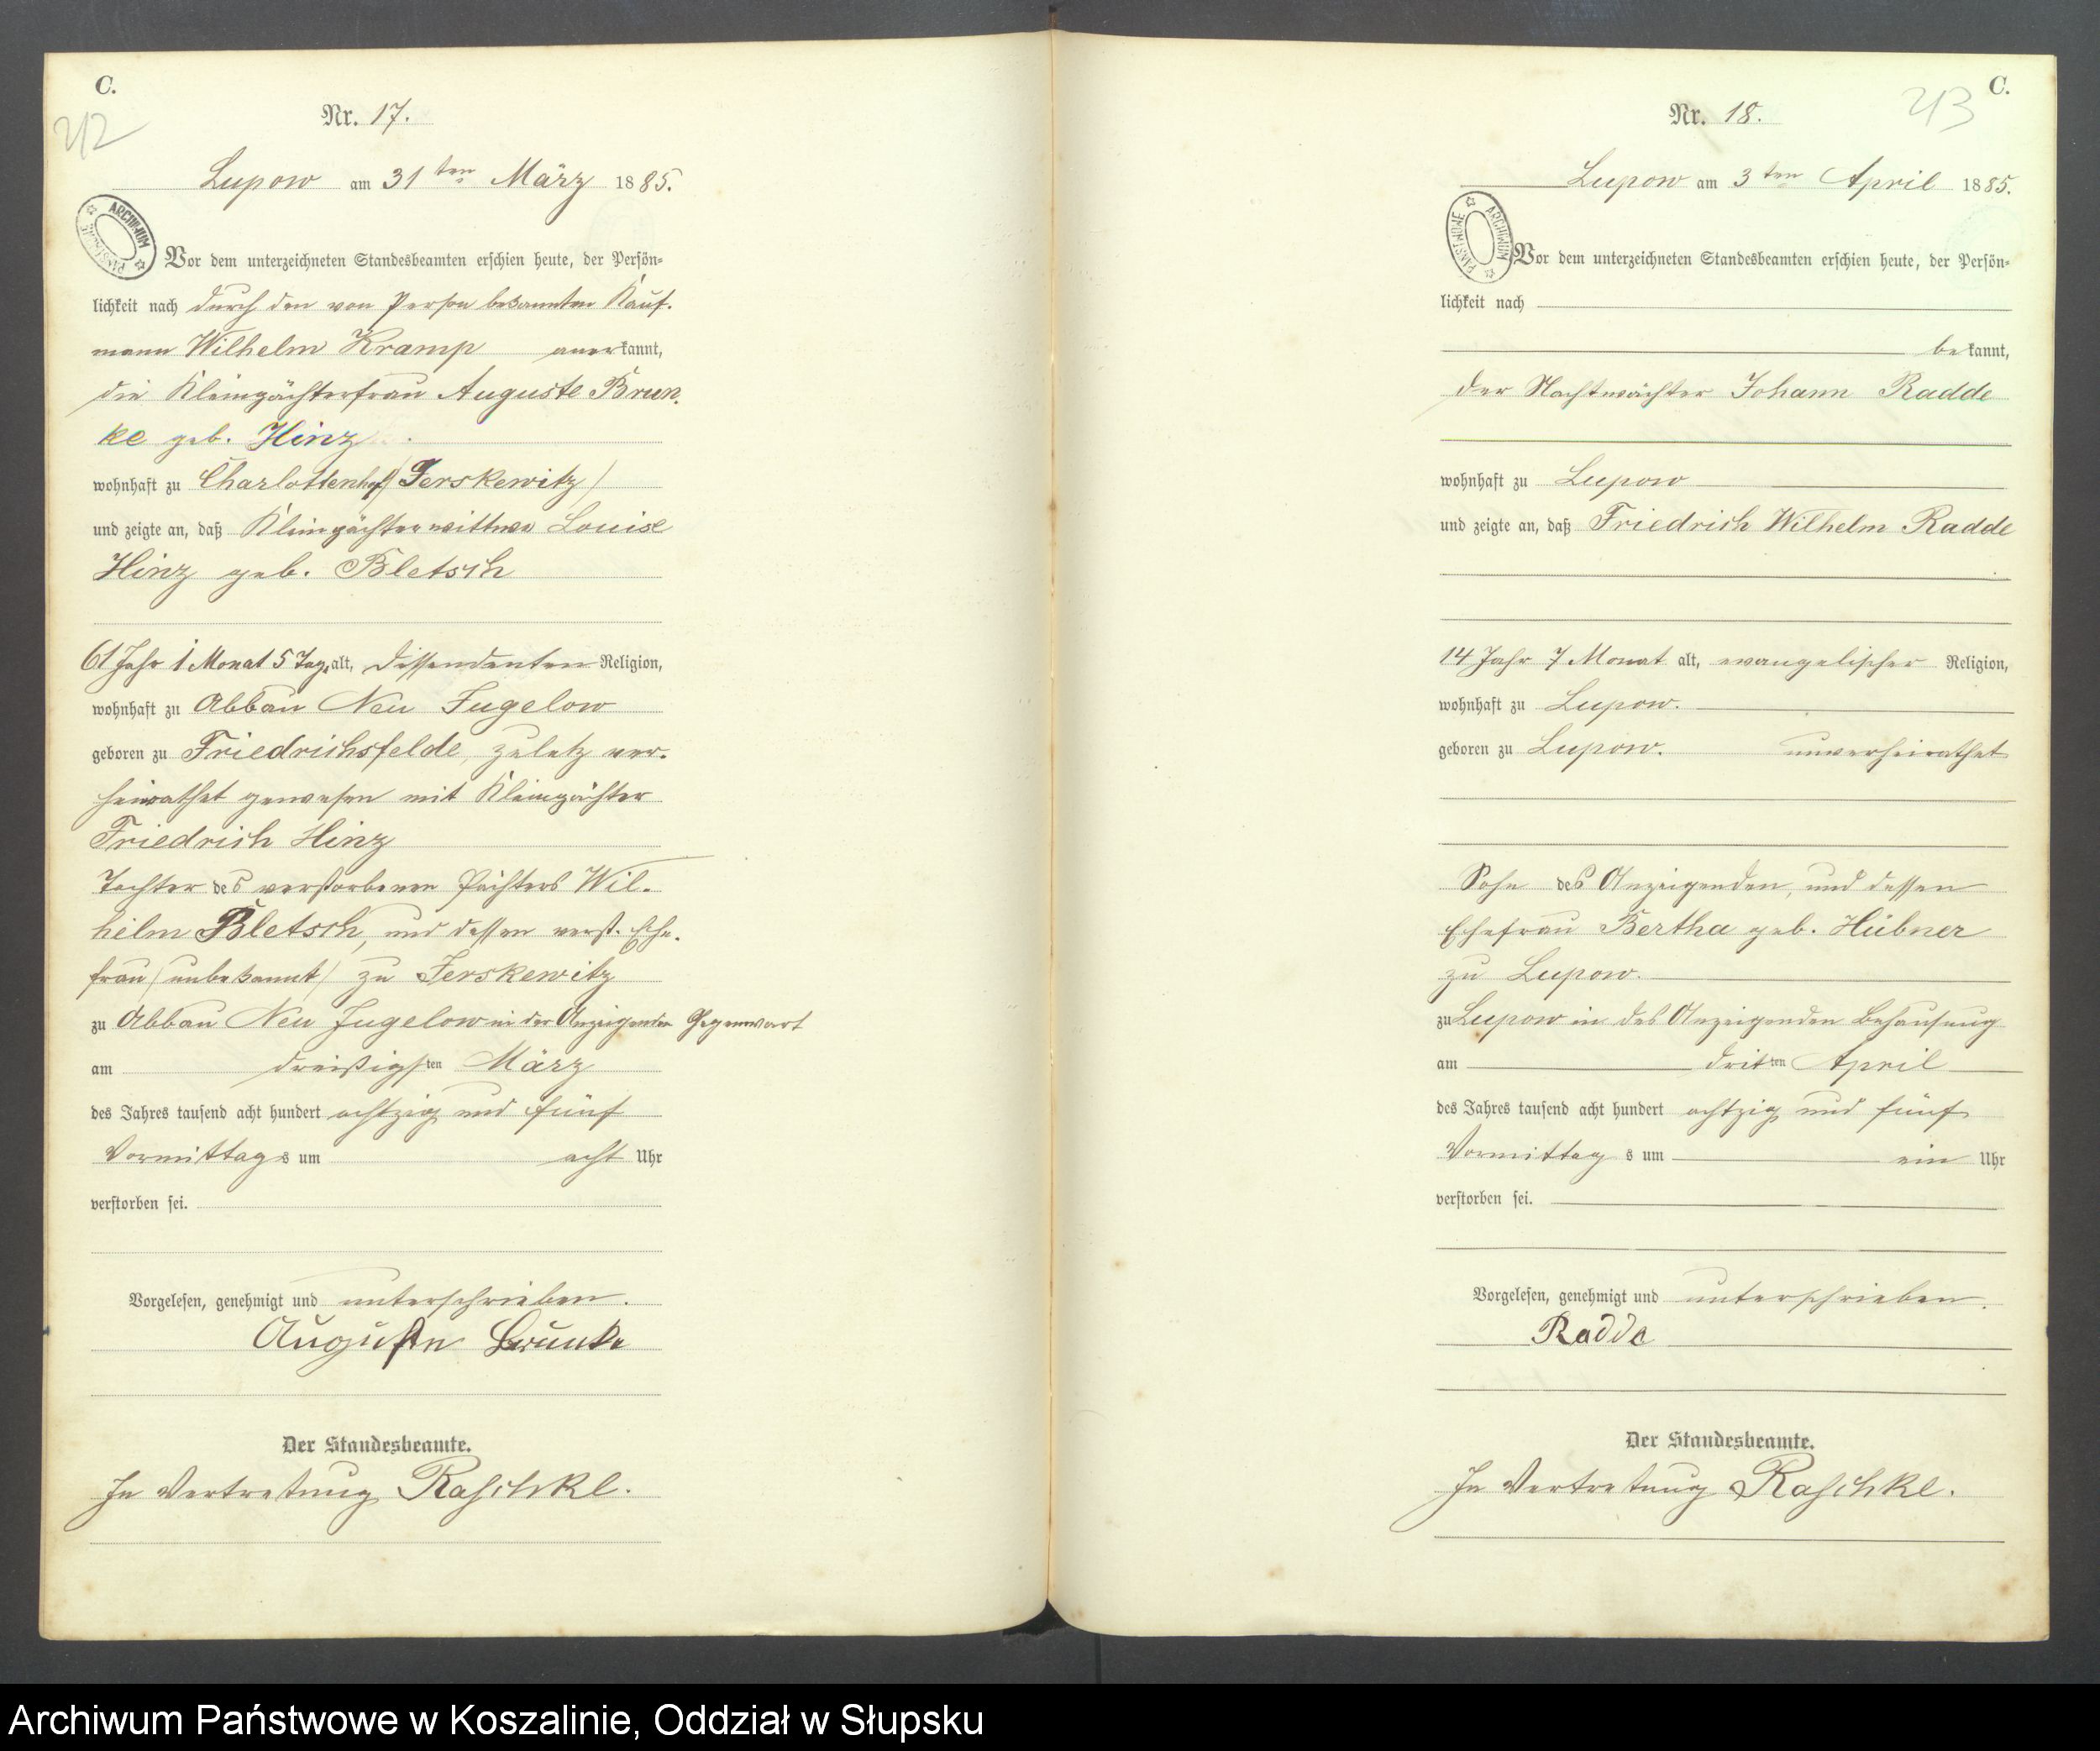 C.
212
Nr. 17.
Lupow am 31 ten März 1885.
ARCHIWUM PAŃSTWOWE
Vor dem unterzeichneten Standesbeamten erschien heute, der Persön-
lichkeit nach durch den von Person bekannten Kauf-
mann Wilhelm Kramp anerkannt,
die Kleinpächterfrau Auguste Brun-
ke geb. Hinz
wohnhaft zu Charlottenhof / Jerskewitz /
und zeigte an, daß Kleinpächterwittwe Louise
Hinz geb. Bletsch
61 Jahr 1 Monat 5 Tage alt, Dissendenten Religion,
wohnhaft zu Abbau Neu Jugelow
geboren zu Friedrichsfelde, zuletz ver-
heirathet gewesen mit Kleinpächter
Friedrich Hinz
Tochter des verstorbenen Pächters Wil-
helm Bletsch, und dessen verst. Ehe-
frau / unbekannt / zu Jerskewitz
zu Abbau Neu Jugelow in der Anzeigenden Gegenwart
am dreißigsten März
des Jahres tausend acht hundert achtzig und fünf
Vormittags um acht Uhr
verstorben sei.
Vorgelesen, genehmigt und unterschrieben.
Auguste Brunke
Der Standesbeamte.
In Vertretung Raschke.
C.
213
Nr. 18.
Lupow am 3 ten April 1885.
ARCHIWUM PAŃSTWOWE
Vor dem unterzeichneten Standesbeamten erschien heute, der Persön-
lichkeit nach
bekannt,
der Nachtwächter Johann Radde
wohnhaft zu Lupow
und zeigte an, daß Friedrich Wilhelm Radde
14 Jahr 7 Monat alt, evangelischer Religion,
wohnhaft zu Lupow.
geboren zu Lupow. unverheirathet
Sohn des Anzeigenden, und dessen
Ehefrau Bertha geb. Hübner
zu Lupow.
zu Lupow in des Anzeigenden Behausung
am dritten April
des Jahres tausend acht hundert achtzig und fünf
Vormittags um ein Uhr
verstorben sei.
Vorgelesen, genehmigt und unterschrieben.
Radde
Der Standesbeamte.
In Vertretung Raschke.
Archiwum Państwowe w Koszalinie, Oddział w Słupsku